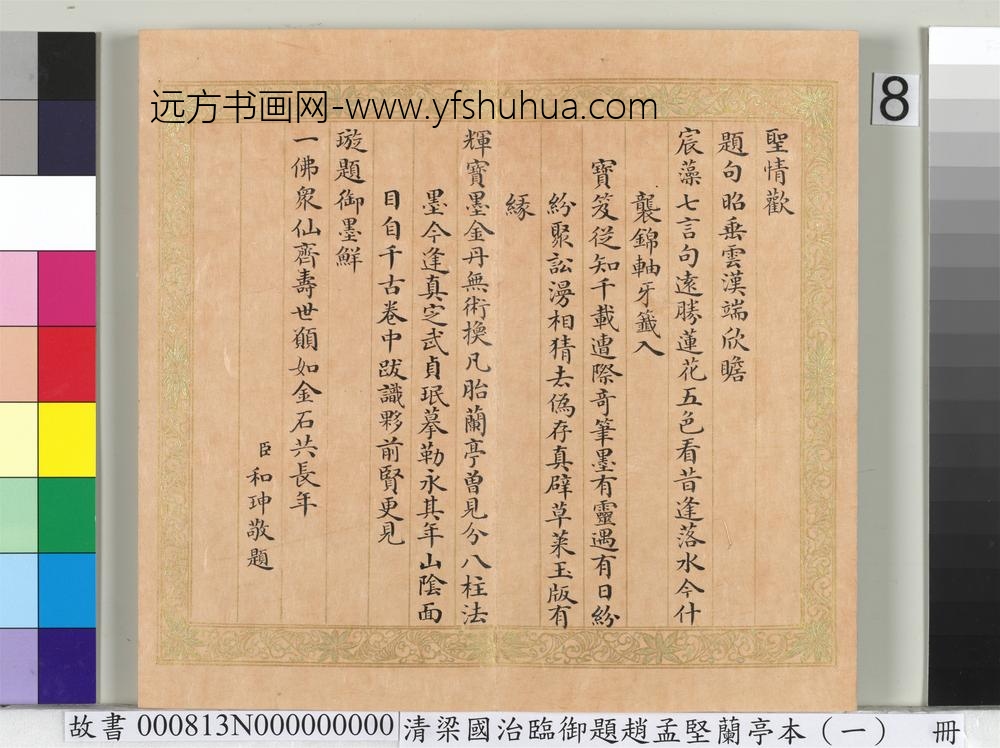 远方书画网-www.yfshuhua.com
8
聖情歡
題句昭垂雲漢端欣瞻
宸藻七言句遠勝蓮花五色看昔逢落水今什
襲錦軸牙籤入
寶笈從知千載遭際奇筆墨有靈遇有日紛
紛聚訟漫相猜去偽存真辟草萊玉版有
緣
輝寶墨金丹無術換凡胎蘭亭曾見分八柱法
墨今逢真定武貞珉摹勒永其年山陰面
目自千古卷中跋識夥前賢更見
璇題御墨鮮
一佛眾仙齊壽世願如金石共長年
臣和珅敬題
故書 000813N000000000 清梁國治臨御題趙孟堅蘭亭本（一） 冊